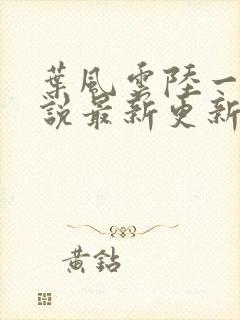 葉風雲陸一
說最新更新
黃鉆